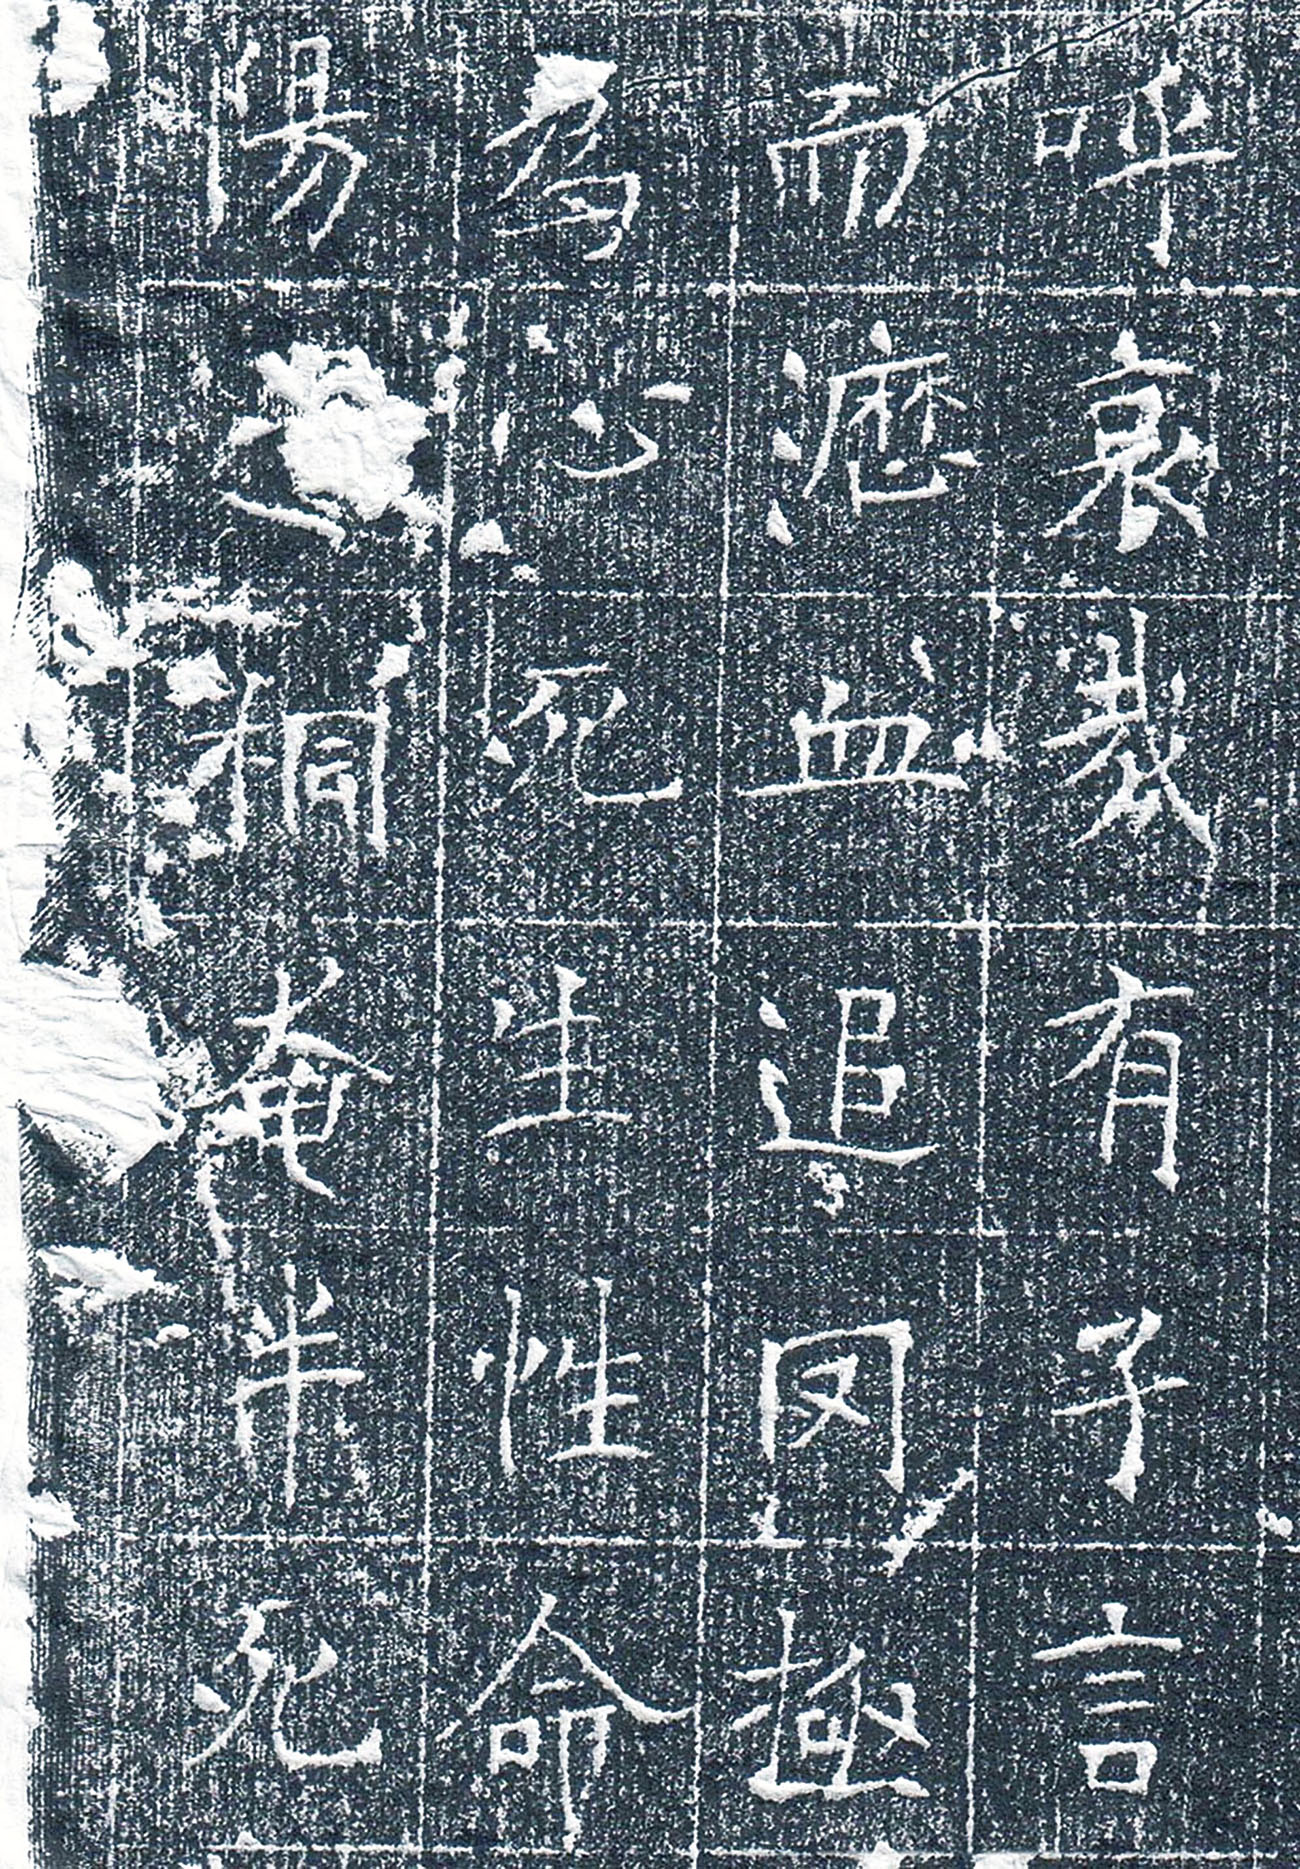 呼哀哉有子言
而瀝血追罔極
爲心死生性命
陽桐奄半死